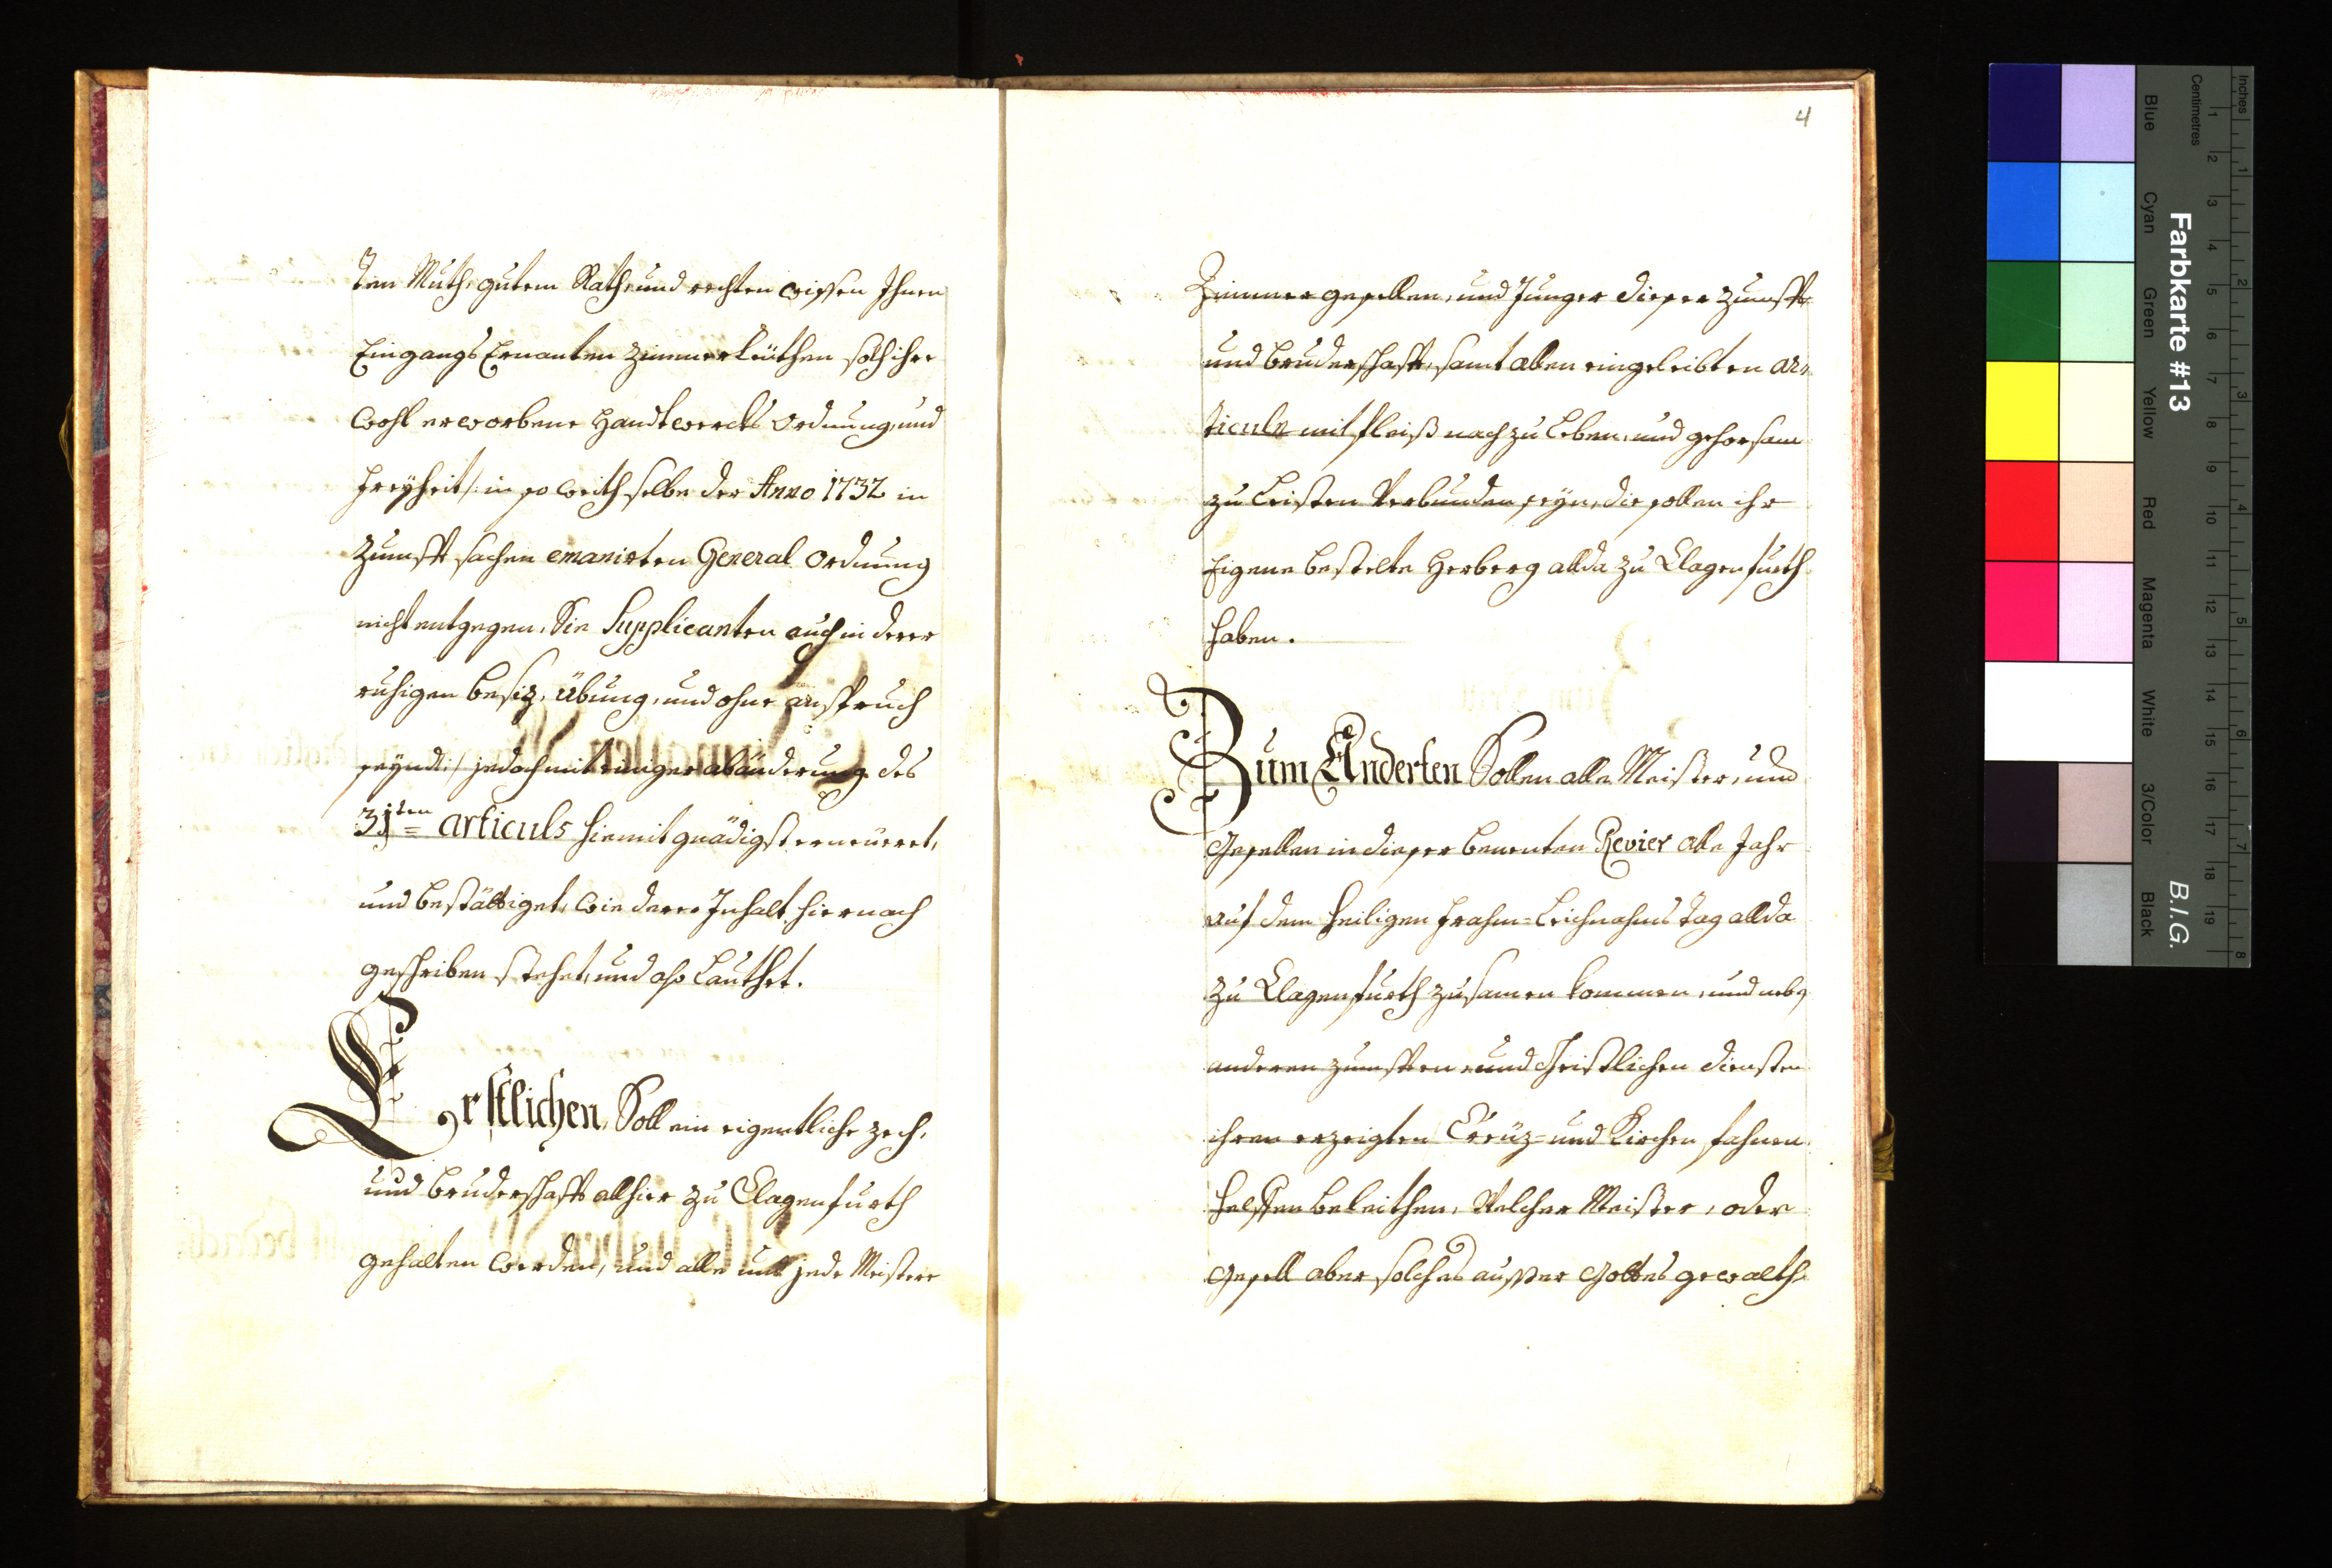 ten Muth, gutem Rath, und rechten wissen Ihnen
Eingangs Ernanten Zimmerleüthen solch ihre
wohl erworbene Handtwercks Ordnung, und
Freyheit /: in so weith selbe der Anno 1732 in
Zunfft sachen emanirten General Ordnung
nicht entgegen, Sie Supplicanten auch in derer
ruhigen besiz, übung, und ohne anspruch
seynd :/ jedoch mit einiger abänderung des
31ten articuls hiemit gnädigst erneüeret,
und bestättiget, wie derer Inhalt hiernach
geschriben stehet, und also lauthet.
Erstlichen, Soll ein eigentliche zech,
und bruderschafft allhier zu Clagenfurth
gehalten werden, und alle und jede Meistere
4
Zimmergesellen, und Junger dieser Zunfft
und bruderschafft, samt allen eingeleibten ar-
ticuln mit fleiß nachzu leben, und gehorsam
zu leisten verbunden seyn, die sollen ihr
Eigene bestelte Herberg allda zu Clagenfurth
haben.
Zum Anderten Sollen alle Meister, und
Gesellen in dieser benenten Revier alle Jahr
auf dem heiligen Frohn-Leichnahms tag allda
zu Clagenfurth zusamen kommen, und neb
anderen zunfften, und Christlichen diensten
ihren erzeigten Creüz- und Kirchen fahnen
helffen beleithen, Welcher Meister, oder
Gesell aber solches ausser Gottes gewalth
Farbkarte #13
B.I.G.
Inches
Centimetres
1 2 3 4 5 6 7 8 9 10 11 12 13 14 15 16 17 18 19
1 2 3 4 5 6 7 8
Blue
Cyan
Green
Yellow
Red
Magenta
White
3/Color
Black